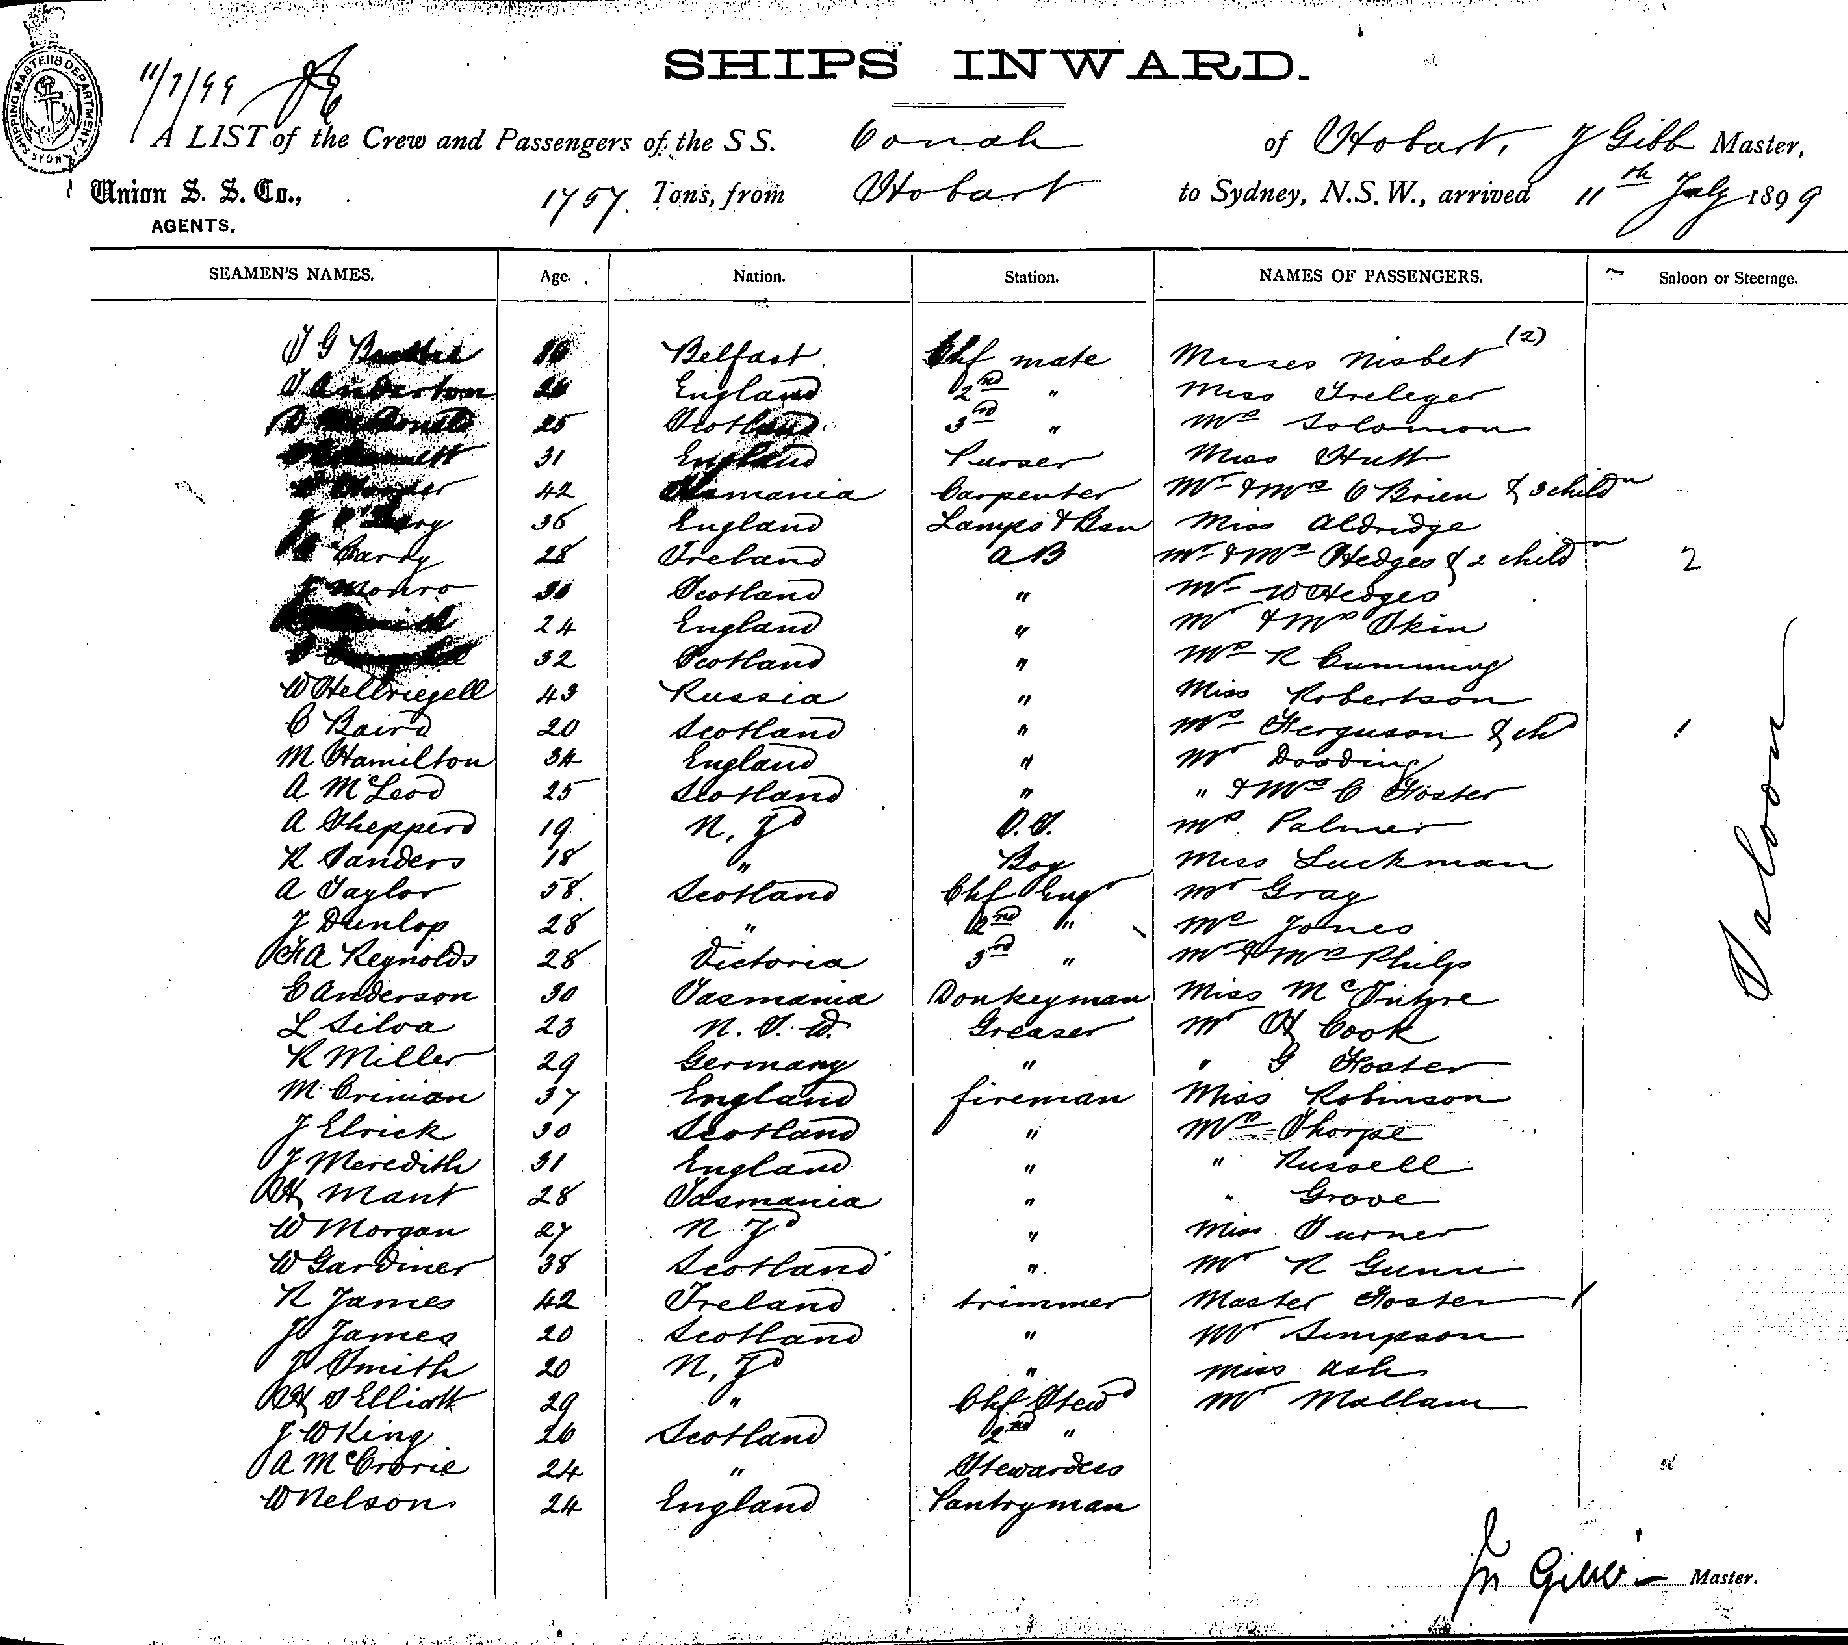 11/7/99
SHIPS INWARD.
A LIST of the Crew and Passengers of the S S. Oonah of Hobart, J Gibb Master,
Union S. S. Co., 1757. Tons, from Hobart to Sydney, N.S.W., arrived 11th July 1899
AGENTS.
SEAMEN'S NAMES. Age. Nation. Station. NAMES OF PASSENGERS. Saloon or Steerage.
J G Belfast Chf mate Misses Nisbet (2)
J Anderton England 2nd " Miss Treleger
25 Scotland 3rd " Mrs Solomon
31 England Purser Miss Hutt
42 Tasmania Carpenter Mr & Mrs O'Brien & 3 childn
36 England Lamps & Bsn Miss Aldridge
28 Ireland AB Mr & Mrs Hedges & 2 childn 2
J Monro 30 Scotland " Mr W Hedges
24 England " Mr & Mrs
32 Scotland " Mrs R Cumming
W Hellriegell 43 Russia " Miss Robertson
C Baird 20 Scotland " Mrs Ferguson & chd 1
M Hamilton 34 England " Mr Dooding
A McLeod 25 Scotland " " & Mrs C Foster
A Shepperd 19 N. Zd O.S. Mrs Palmer
R Sanders 18 " Boy Miss Luckman
A Taylor 58. Scotland Chf Engr Mr Gray
J Dunlop 28 " 2nd " Mrs Jones
F A Reynolds 28 Victoria 3rd " Mr & Mrs Philp
C Anderson 30 Tasmania Donkeyman Miss McIntyre
L Silva 23 N. S. W. Greaser Mr H Cook
R Miller 29 Germany " " G Foster
M Crinion 37 England fireman Miss Robinson
J Elrick 30 Scotland " Mrs Thorpe
J Meredith 31 England " " Russell
H Mant 28 Tasmania " " Grove
W Morgan 27 N Zd " Miss Turner
W Gardiner 38 Scotland " Mr R Gunn
R James 42 Ireland trimmer Master Foster 1
J James 20 Scotland " Mr Simpson
J Smith 20 N. Zd " Miss Ash
H S Elliott 29 " Chf Stewd Mr Mallam
J W King 26 Scotland 2nd "
A McCrorie 24 " Stewardess
W Nelson 24 England Pantryman
Saloon
Jn Gibb Master.